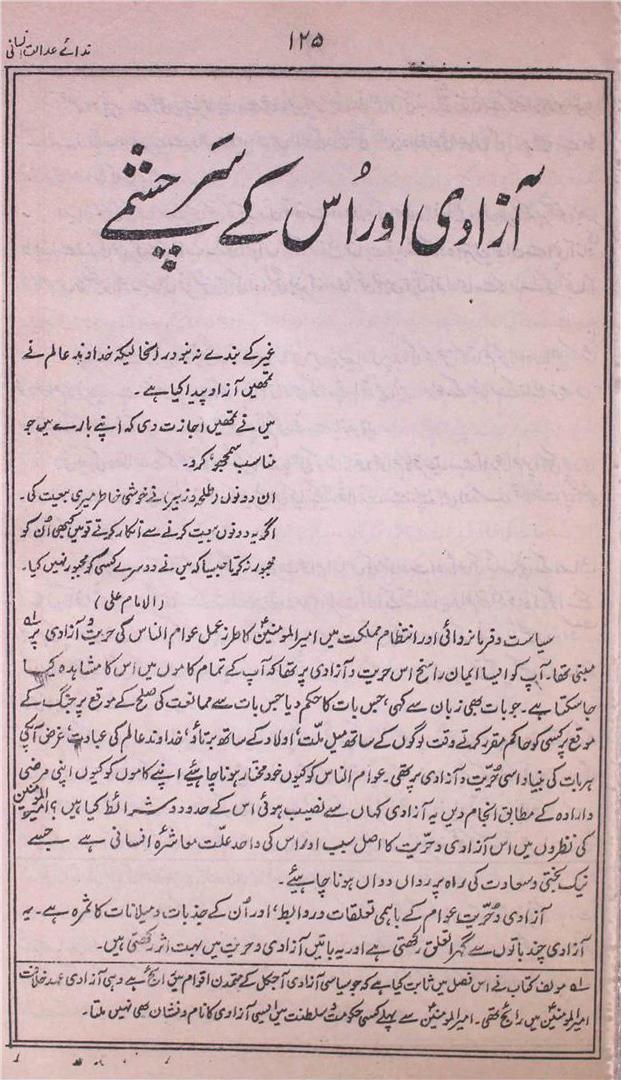 ندائے عدالت انسانی
۱۲۵
آزادی اور اُس کے سَرچشمے
غیر کے بندے نہ بنو در انحالیکہ خداوند عالم نے
تمھیں آزاد پیدا کیا ہے۔
میں نے تمھیں اجازت دی کہ اپنے بارے میں جو
مناسب سمجھو، کرو۔
ان دونوں (طلحہ و زبیر) نے خوشی خاطر میری بیعت کی۔
اگر یہ دونوں بیعت کرنے سے انکار کرتے تو میں کبھی اُن کو
مجبور نہ کرتا جیسا کہ میں نے دوسرے کسی کو مجبور نہیں کیا۔
(الامام علی)
سیاست و فرمانروائی اور انتظام مملکت میں امیر المومنینؑ کا طرز عمل عوام الناس کی حریت و آزادی پر؂
مبنی تھا۔ آپ کو ایسا ایمان راسخ اس حریت و آزادی پر تھا کہ آپ کے تمام کاموں میں اس کا مشاہدہ کیا
جا سکتا ہے۔ جو بات بھی زبان سے کہی، جس بات کا حکم دیا جس بات سے ممانعت کی صلح کے موقع پر جنگ کے
موقع پر کسی کو حاکم مقرر کرتے وقت لوگوں کے ساتھ میل ملّت، اولاد کے ساتھ برتاؤ، خداوند عالم کی عبادت، غرض آپکی
ہر بات کی بنیاد اسی حُریّت و آزادی پر تھی۔ عوام الناس کو کیوں خود مختار ہونا چاہیئے اپنے کاموں کو کیوں اپنی مرضی
و ارادہ کے مطابق انجام دیں یہ آزادی کہاں سے نصیب ہوئی اس کے حدود و شرائط کیا ہیں؟ امیر المومنینؑ
کی نظروں میں اس آزادی و حرّیت کا اصل سبب اور اس کی واحد علّت معاشرۂ انسانی ہے جسے
نیک بختی و سعادت کی راہ پر رواں دواں ہونا چاہیئے۔
آزادی و حُرّیت عوام کے باہمی تعلقات و روابط، اور اُن کے جذبات و میلانات کا ثمرہ ہے۔ یہ
آزادی چند باتوں سے گہرا تعلق رکھتی ہے اور یہ باتیں آزادی و حریت میں بہت اثر رکھتی ہیں۔
؂ مولف کتاب نے اس فصل میں ثابت کیا ہے کہ جو سیاسی آزادی آجکل کے متمدن اقوام میں رائج ہے وہی آزادی عہد خلافت
امیر المومنینؑ میں رائج تھی۔ امیر المومنینؑ سے پہلے کسی حکومت و سلطنت میں ایسی آزادی کا نام و نشان بھی نہیں ملتا۔